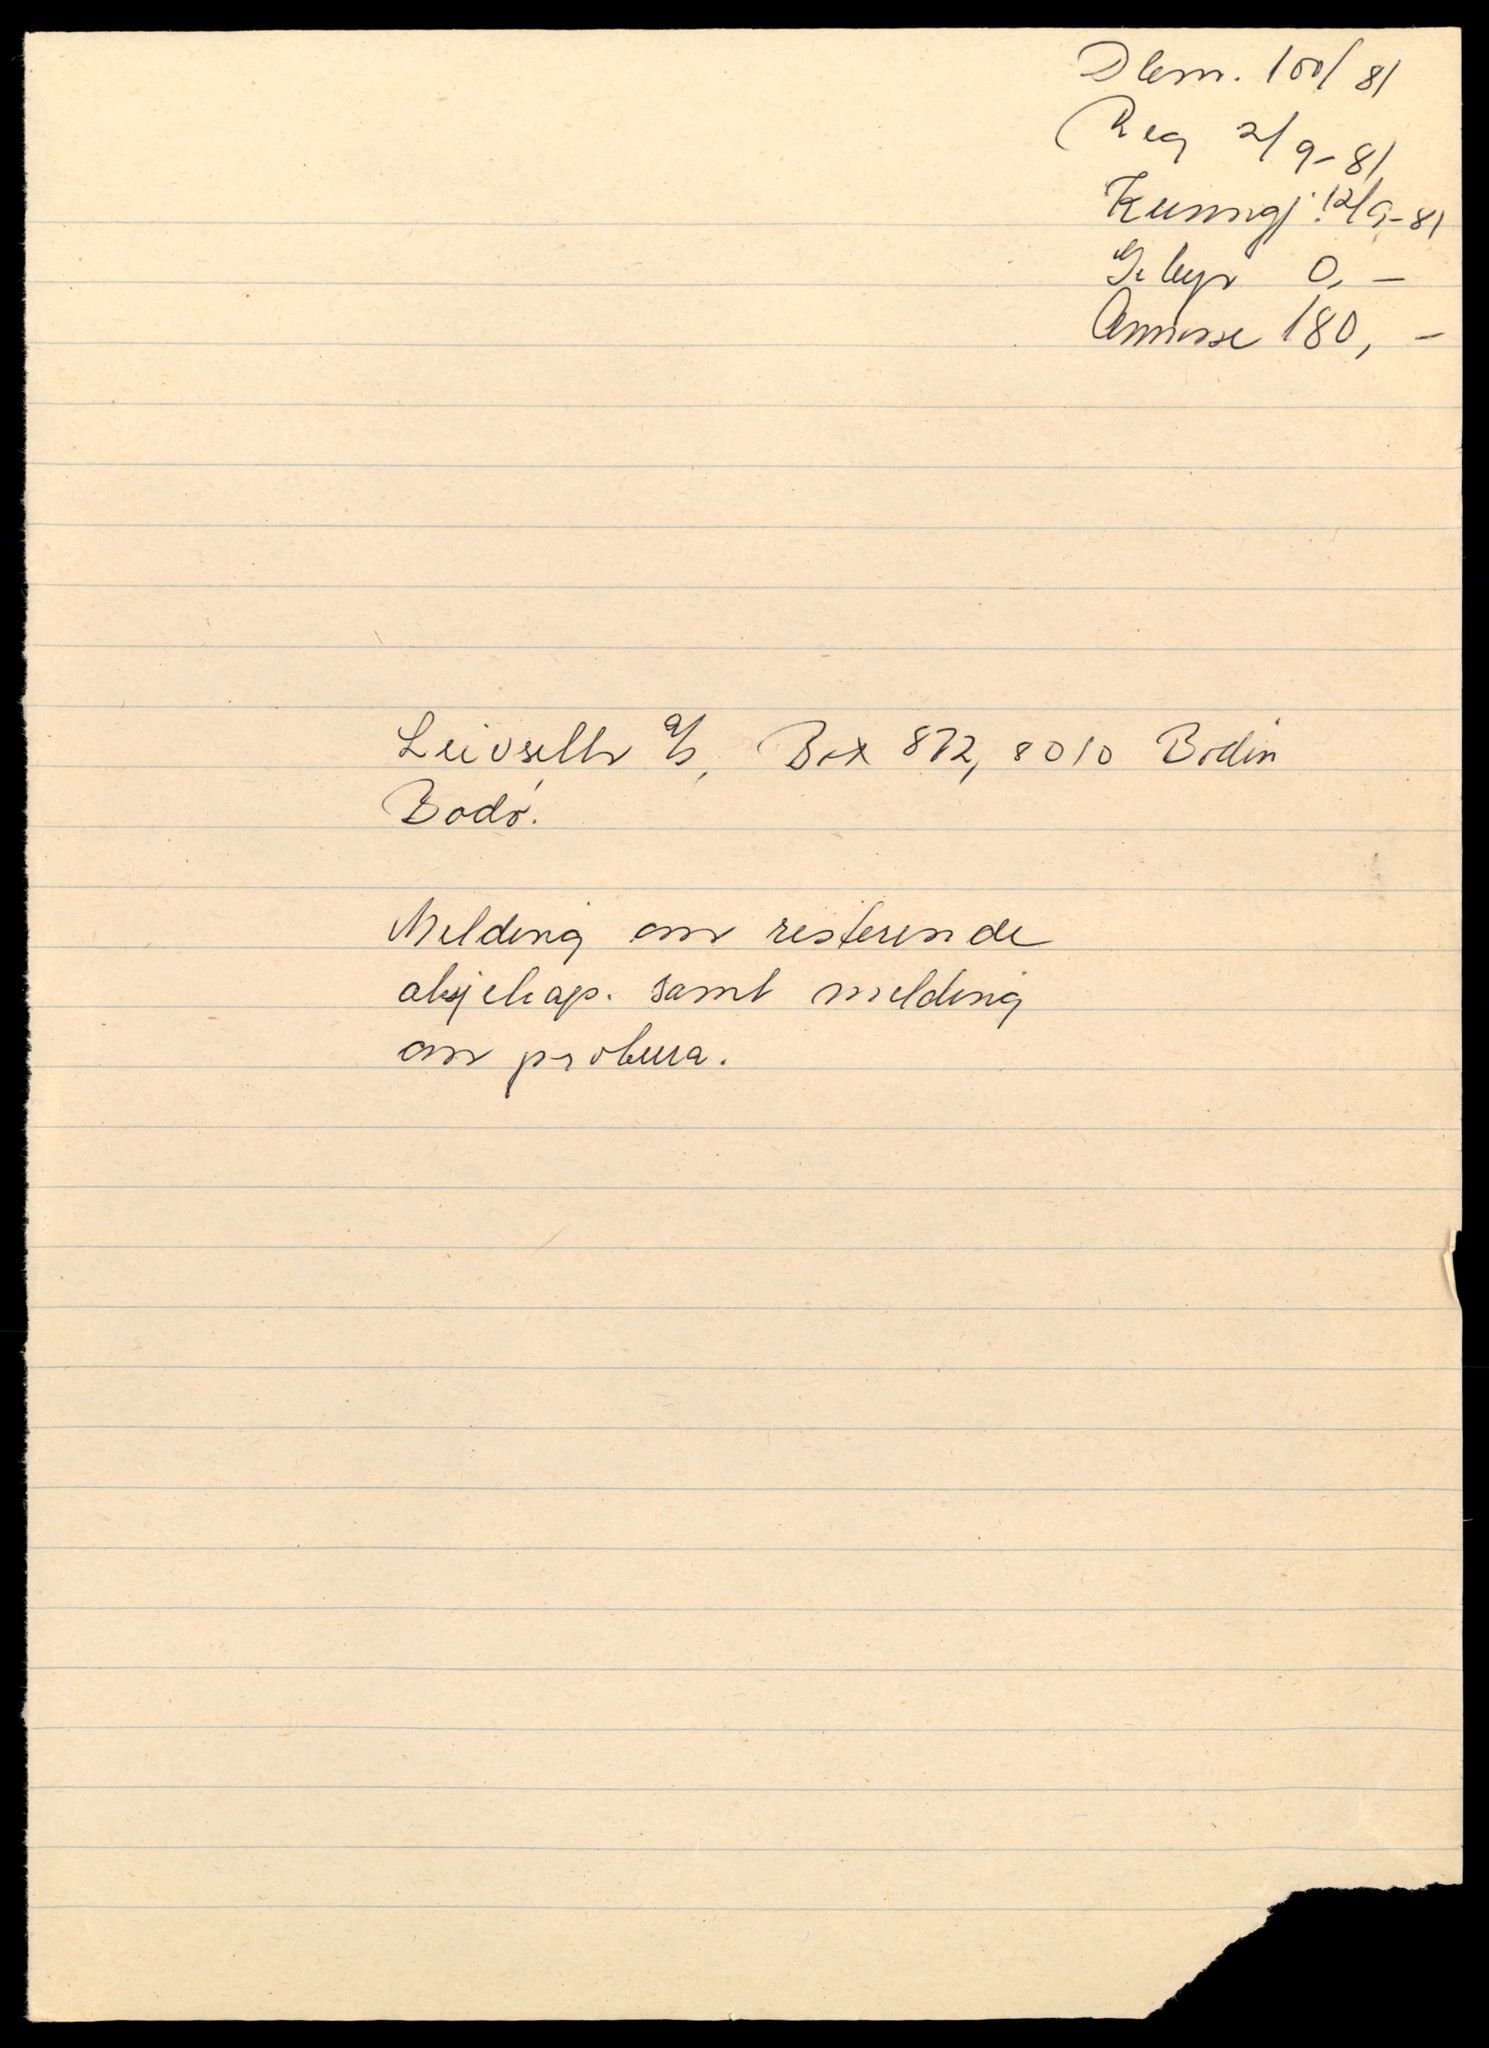 Dbnr. 100/81
Reg 2/9-81
Kunngj. 12/9-81
Gebyr 0,-
Annonse 180,-
Leivseth a/s, Box 872, 8010 Bodin
Bodø.
Melding om resterende
aksjekap. samt melding
om prokura.